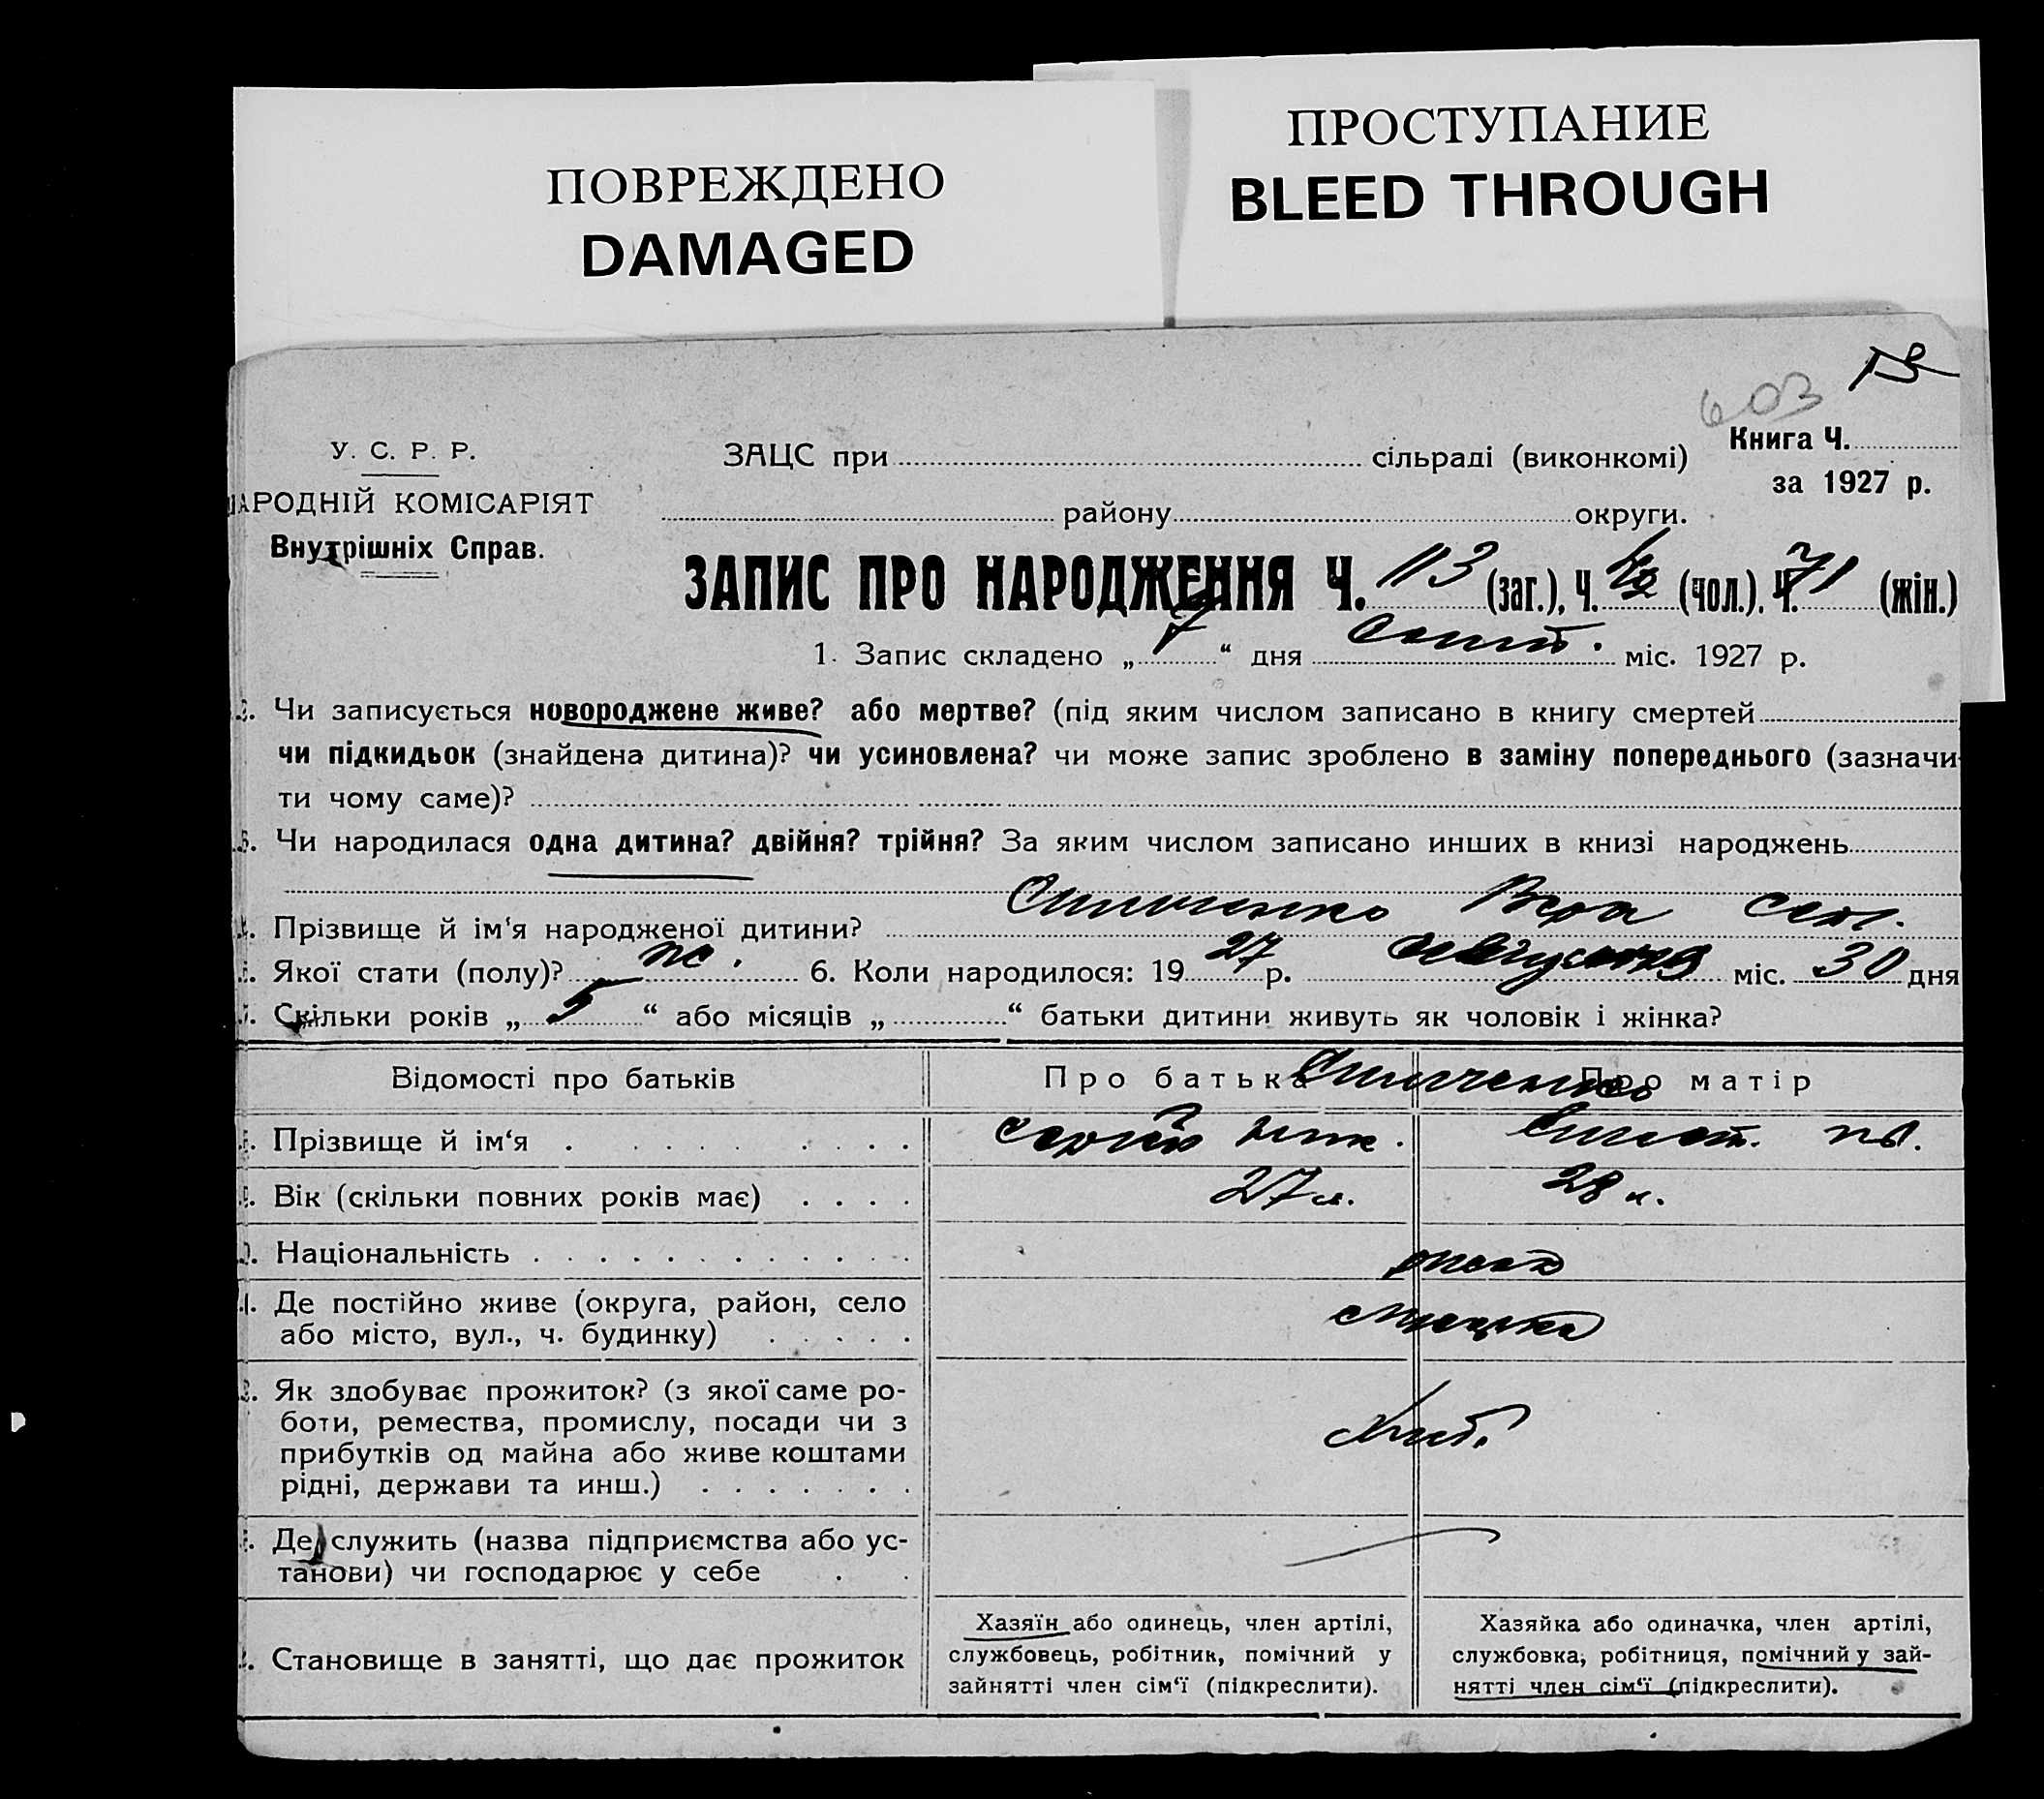 ПОВРЕЖДЕНО
DAMAGED
ПРОСТУПАНИЕ
BLEED THROUGH
603
У. С. Р. Р.
ЗАЦС при сільраді (виконкомі)
Книга Ч.
за 1927 р.
НАРОДНІЙ КОМІСАРІЯТ
Внутрішніх Справ.
району округи.
ЗАПИС ПРО НАРОДЖЕННЯ Ч. 113 (заг.), Ч. (чол.), Ч. 71 (жін.)
1. Запис складено „ 7 “ дня сент. міс. 1927 р.
2. Чи записується новороджене живе? або мертве? (під яким числом записано в книгу смертей
чи підкидьок (знайдена дитина)? чи усиновлена? чи може запис зроблено в заміну попереднього (зазначи-
ти чому саме)?
3. Чи народилася одна дитина? двійня? трійня? За яким числом записано инших в книзі народжень
Прізвище й ім‘я народженої дитини? Вера
Якої стати (полу)? ж. 6. Коли народилося: 19 27 р. августа міс. 30 дня
Скільки років „ 5 “ або місяців „ “ батьки дитини живуть як чоловік і жінка?
Відомості про батьків Про батька Про матір
Прізвище й ім‘я Сергій
Вік (скільки повних років має) 27 л. 28 л.
Національність
Де постійно живе (округа, район, село
або місто, вул., ч. будинку)
Як здобуває прожиток? (з якої саме ро-
боти, ремества, промислу, посади чи з
прибутків од майна або живе коштами
рідні, держави та инш.)
хліб.
Де служить (назва підприємства або ус-
танови) чи господарює у себе
Становище в занятті, що дає прожиток
Хазяїн або одинець, член артілі,
службовець, робітник, помічний у
зайнятті член сім‘ї (підкреслити).
Хазяйка або одиначка, член артілі,
службовка, робітниця, помічний у зай-
нятті член сім‘ї (підкреслити).